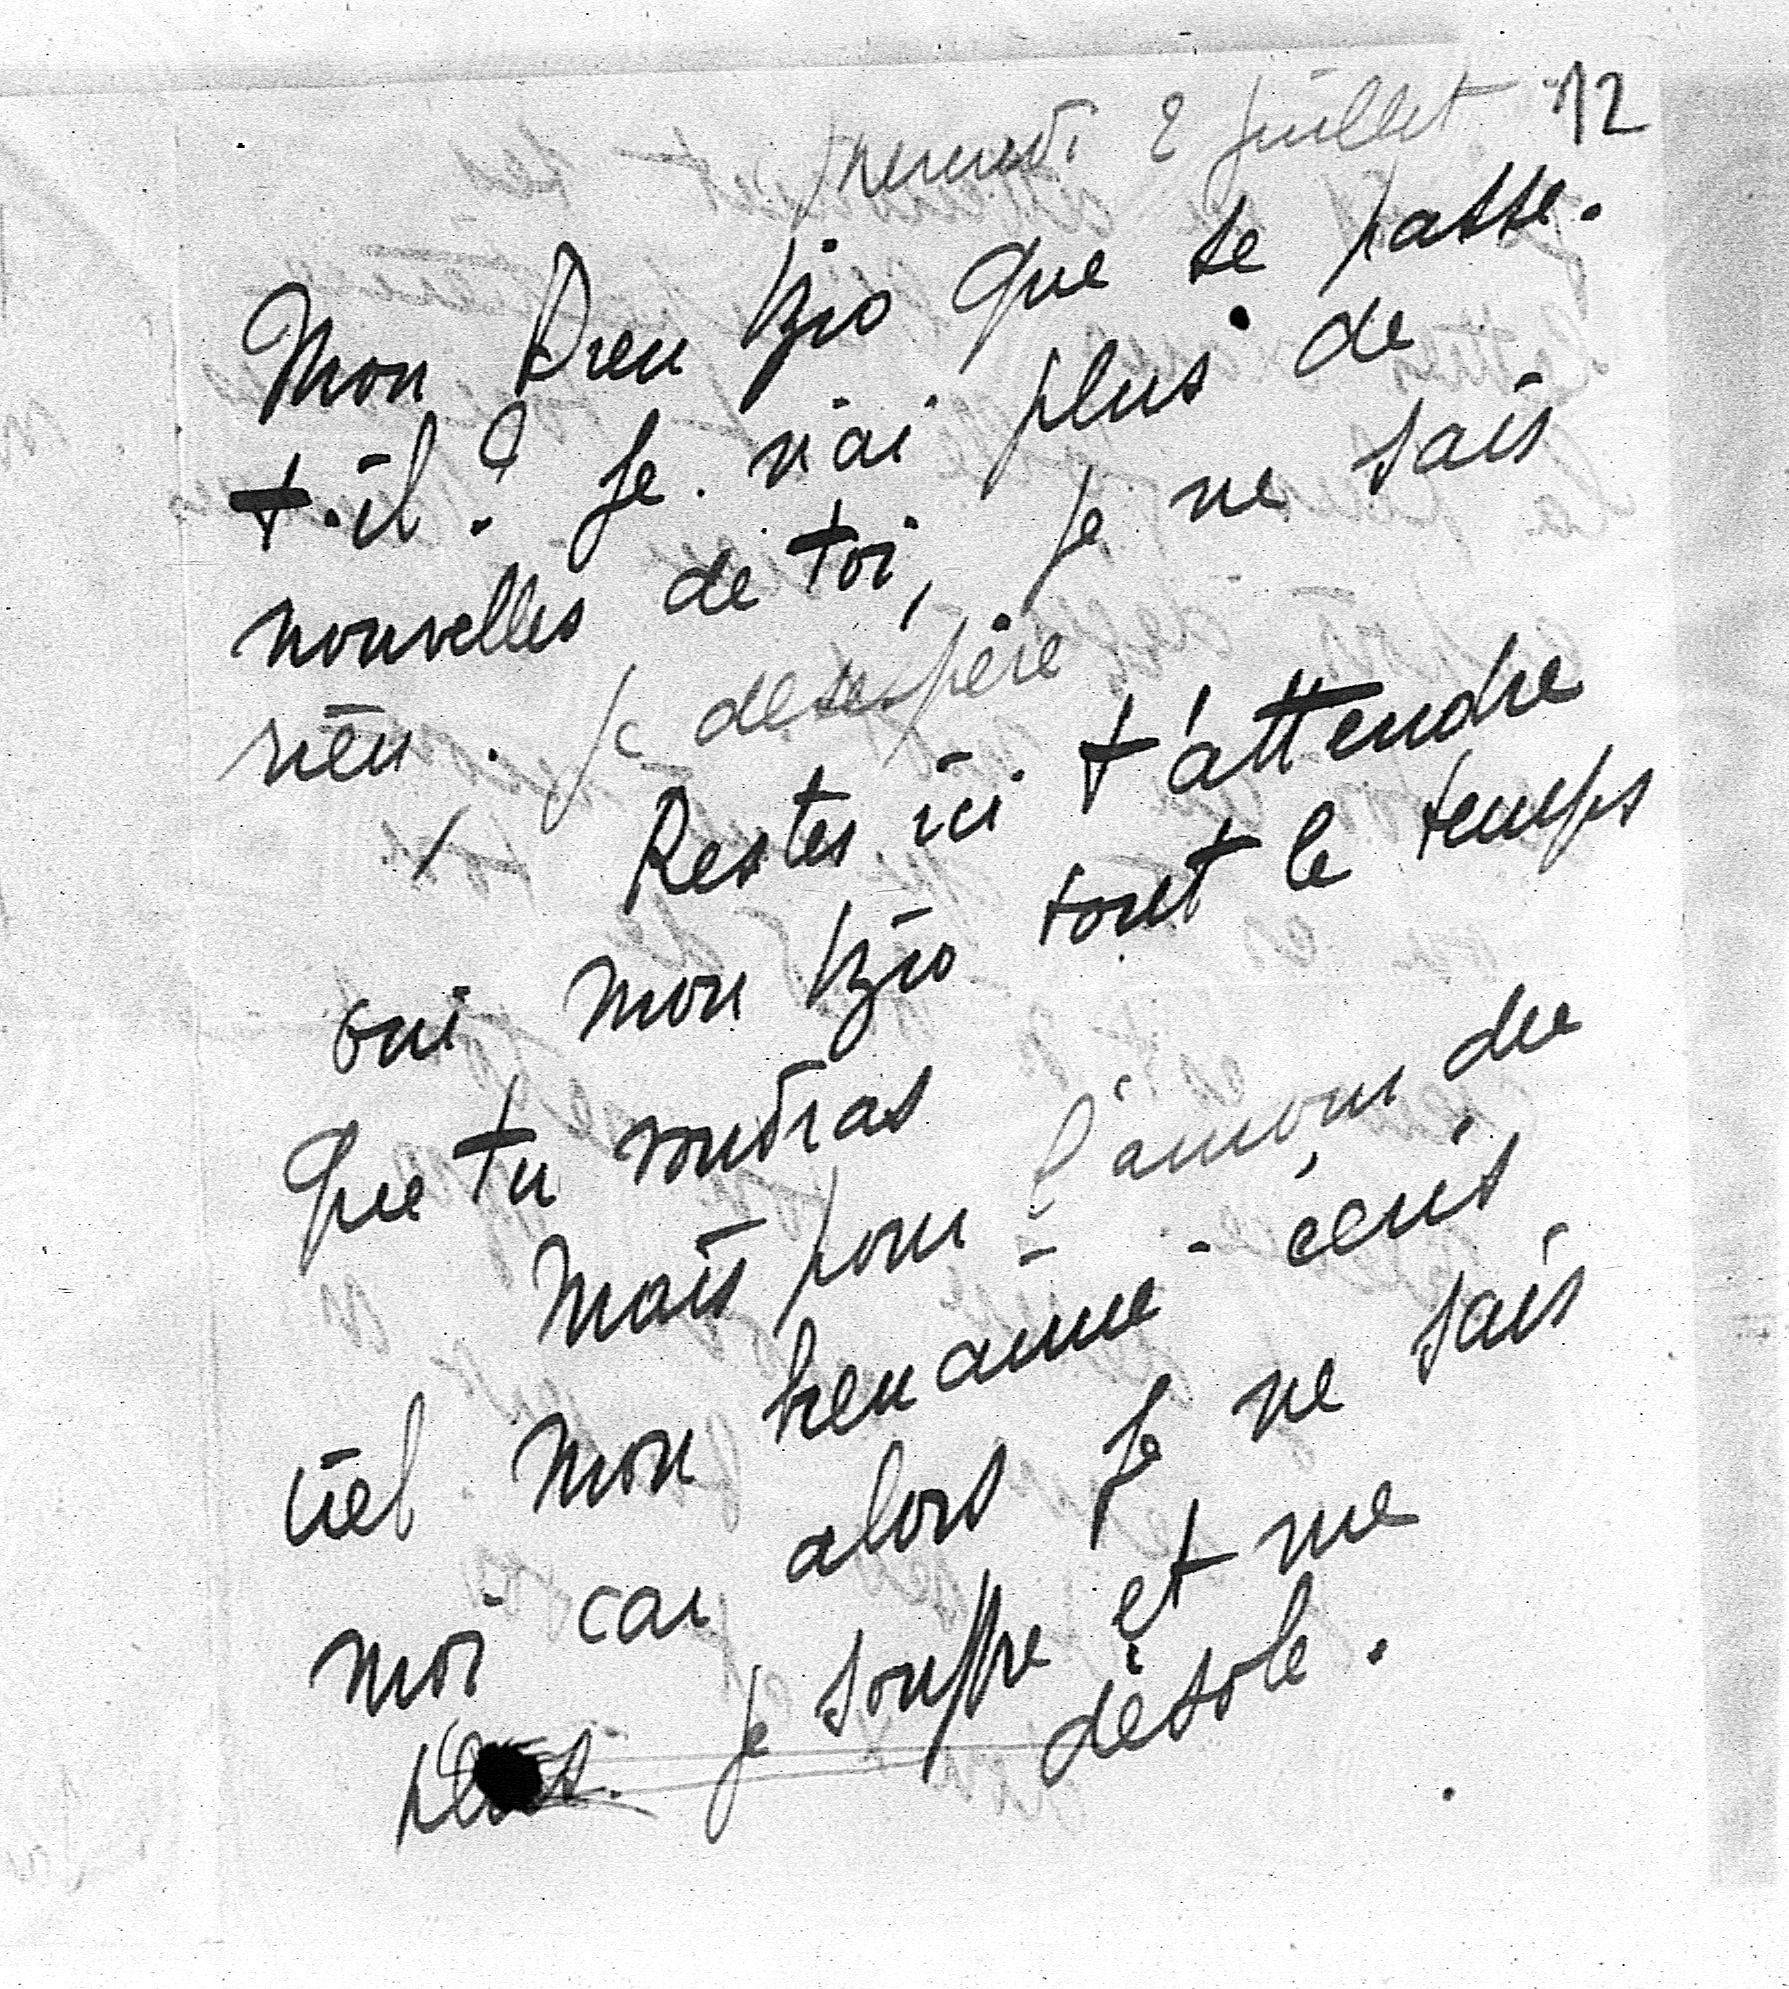 mercredi 2 juillet 12
Mon Dieu Kzio que se passe.
t.il ? Je n'ai plus de
nouvelles de toi, je ne sais
rien. Je désespère
Restes ici t'attendre
oui mon Kzio tout le temps
que tu voudras
Mais pour l'amour du
ciel mon bien aimé - écris
moi car alors je ne sais
plus. je souffre et me
désole.